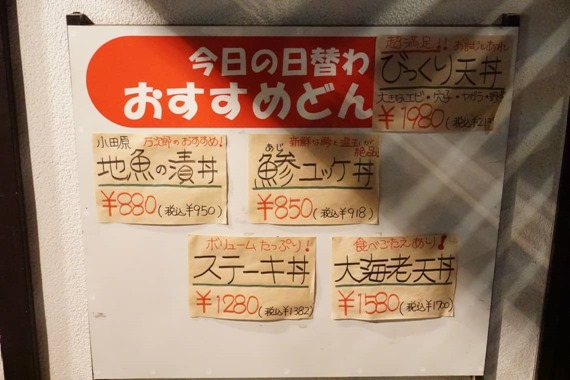 今日の日替わ
おすすめどん
超満足!!
びっくり天丼
大きなエビ・穴子・
¥1980
小田原
おすすめ!
地魚の漬丼
¥880(税込¥950)
新鮮な
絶品!
あじ
鯵ユッケ丼
¥850(税込¥918)
ボリュームたっぷり!
ステーキ丼
¥1280(税込¥1382)
食べごたえあり!
大海老天丼
¥1580(税込¥1700)